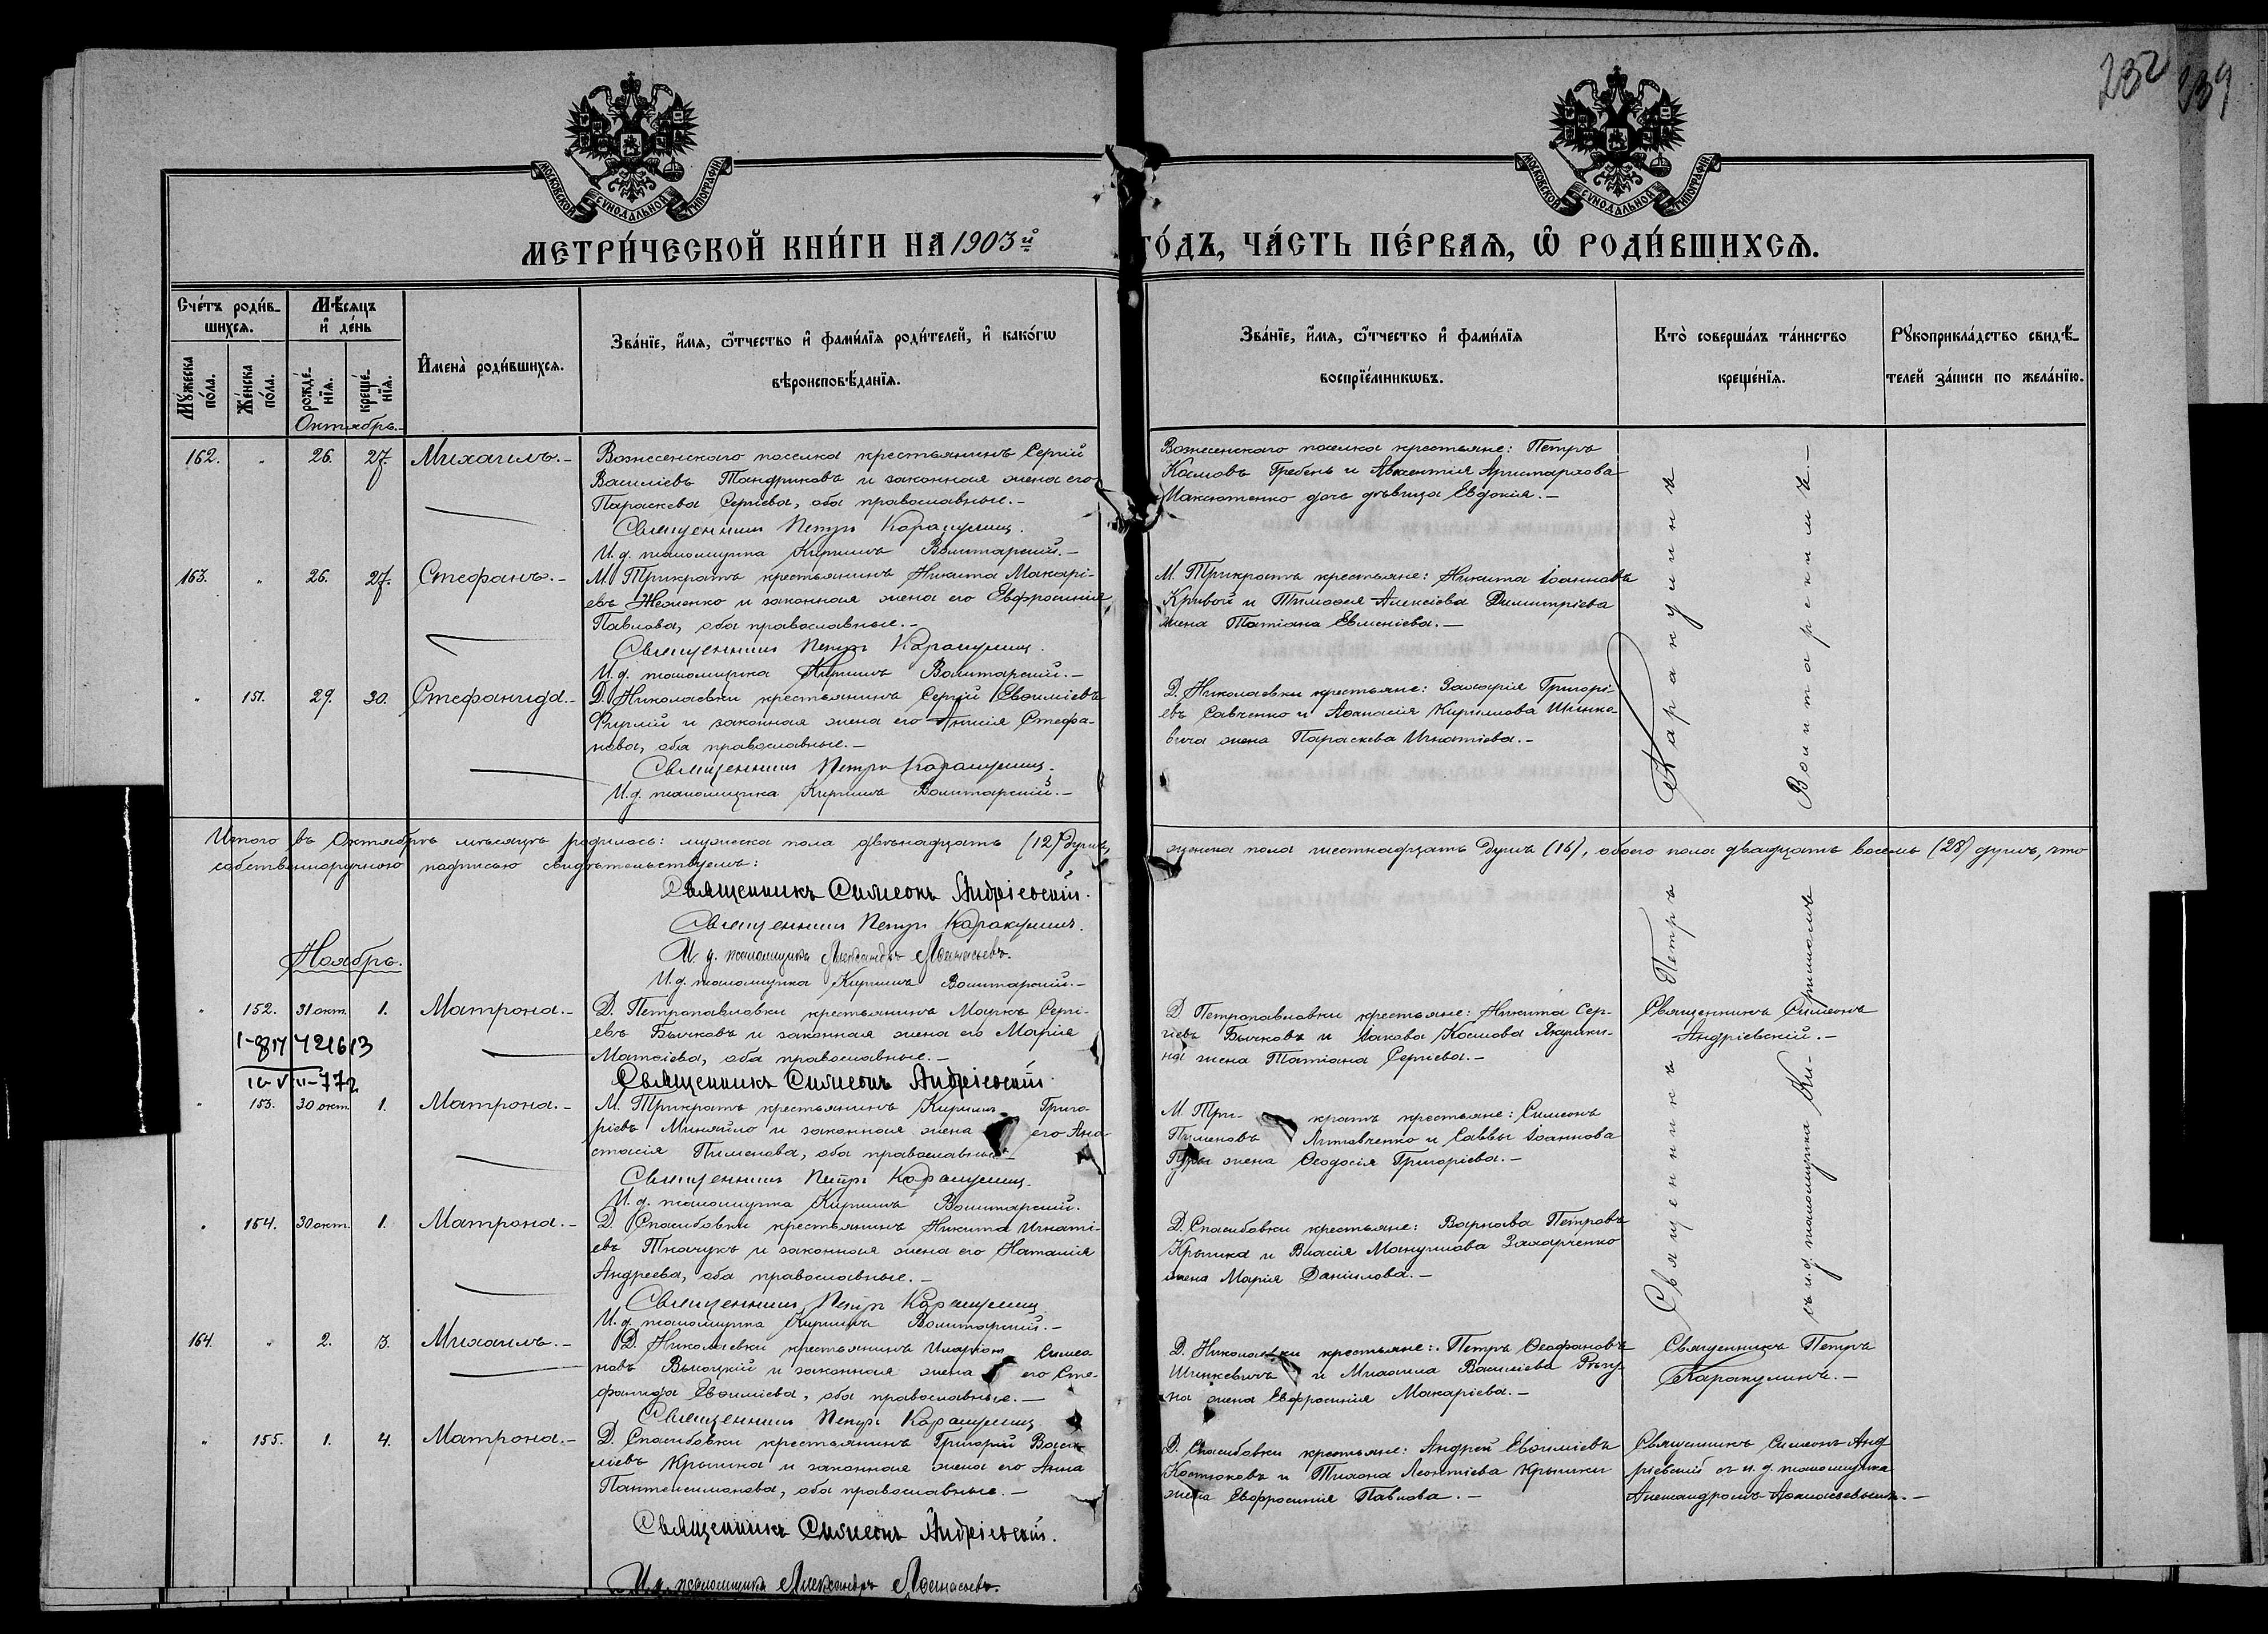 232
239
МОСКОВСКОЙ СѴНОДАЛЬНОЙ ТИПОГРАФІИ
МОСКОВСКОЙ СѴНОДАЛЬНОЙ ТИПОГРАФІИ
МЕТРИ́ЧЕСКОЙ КНИ́ГИ НА 1903й
ГО́ДЪ, ЧА́СТЬ ПЕ́РВАѦ, Ѽ РОДИ́ВШИХСѦ.
Сче́тъ роди́в-
шихсѧ.
Мѣ́сѧцъ
и҆ де́нь
Мꙋ́жеска
по́ла.
Же́нска
по́ла.
рожде́-
нїѧ.
креще́-
нїѧ.
И҆мена̀ роди́вшихсѧ.
Зва́нїе, и҆́мѧ, ѻ҆́тчество и҆ фами́лїѧ роди́телей, и҆ како́гѡ
вѣроисповѣ́данїѧ.
Зва́нїе, и҆́мѧ, ѻ҆́тчество и҆ фами́лїѧ
воспрїе́мникѡвъ.
Кто̀ соверша́лъ та́инство
креще́нїѧ.
Рꙋкоприкла́дство свидѣ́-
телей за́писи по жела́нїю.
Октябрь.-
162. " 26. 27. Михаилъ.- Вознесенскаго поселка крестьянинъ Сергій
Василіевъ Тандриковъ и законная жена его
Параскева Сергіева, оба православные.-
Священникъ Петръ Каракулинъ.
И.д. псаломщика Кириллъ Воитарскій.-
Вознесенскаго поселка крестьяне: Петръ
Космовъ Гребень и Авксентія Аристархова
Максютенко дочь дѣвица Евдокія.-
163. " 26. 27. Стефанъ.- М. Трикратъ крестьянинъ Никита Макарі-
евъ и законная жена его Евфросинія
Павлова, оба православные.-
Священникъ Петръ Каракулинъ.
И.д. псаломщика Кириллъ Воитарскій.-
М. Трикратъ крестьяне: Никита Іоанновъ
Кривой и Тимоѳея Алексіева Димитріева
жена Татіана Евменіева.-
" 151. 29. 30. Стефанида.- Д. Николаевки крестьянинъ Сергій Евѳиміевъ
и законная жена его Анисія Стефа-
нова, оба православные.-
Священникъ Петръ Каракулинъ.
И.д. псаломщика Кириллъ Воитарскій.-
Д. Николаевки крестьяне: Захарія Григорі-
евъ Савченко и Аѳанасія Кириллова Шинке-
вича жена Параскева Игнатіева.-
Итого въ Октябрѣ мѣсяцѣ родилось: мужеска пола двѣнадцать (12) душъ,
женска пола шестнадцать душъ (16), обоего пола двадцать восемь (28) душъ, что
собственноручною подписью свидѣтельствуемъ:
Священникъ Симеонъ Андріевскій.
Священникъ Петръ Каракулинъ.
И. д. псаломщика Александръ Аѳанасьевъ.
И.д. псаломщика Кириллъ Воитарскій.-
Священникъ Петръ Каракулинъ
съ и.д. псаломщика Кирилломъ Воитарскимъ.-
Ноябрь.
" 152. 31 окт. 1. Матрона.- Д. Петропавловки крестьянинъ Маркъ Сергі-
евъ Бычковъ и законная жена его Марія
Матѳіева, оба православные.-
Священникъ Симеонъ Андріевскій.
Д. Петропавловки крестьяне: Никита Сер-
гіевъ Бычковъ и Іакова Космова Якушки-
на жена Татіана Сергіева.-
Священникъ Симеонъ
Андріевскій.-
421613
" 153. 30 окт. 1. Матрона.- М. Трикратъ крестьянинъ Кириллъ Григо-
ріевъ Миняйло и законная жена его Ана-
стасія Пименова, оба православные.-
Священникъ Петръ Каракулинъ.
И.д. псаломщика Кириллъ Воитарскій.
М. Три- кратъ крестьяне: Симеонъ
Пименовъ Литовченко и Саввы Іоаннова
жена Ѳеодосія Григоріева.-
" 154. 30 окт. 1. Матрона.- Д. Спасибовки крестьянинъ Никита Игнаті-
евъ Ткачукъ и законная жена его Наталія
Андреева, оба православные.-
Священникъ Петръ Каракулинъ
И.д. псаломщика Кириллъ Воитарскій.-
Д. Спасибовки крестьяне: Варнава Петровъ
Крышка и Власія Мануилова Захарченко
жена Марія Даніилова.-
164. " 2. 3. Михаилъ.- Д. Николаевки крестьянинъ Иларіонъ Симео-
новъ Высоцкій и законная жена его Сте-
фанида Евѳиміева, оба православные.-
Священникъ Петръ Каракулинъ
Д. Николаевки крестьяне: Петръ Ѳеофановъ
Шинкевичъ и Михаила Василіева
на жена Евфросинія Макаріева.-
Священникъ Петръ
Каракулинъ.-
" 155. 1. 4. Матрона.- Д. Спасибовки крестьянинъ Григорій Васи-
ліевъ Крышка и законная жена его Анна
Пантелеимонова, оба православные.-
Священникъ Симеонъ Андріевскій.
И.д. псаломщика Александръ Аѳанасьевъ.
Д. Спасибовки крестьяне: Андрей Евѳиміевъ
Костюковъ и Тихона Леонтіева Крышки
жена Евфросинія Павлова.-
Священникъ Симеонъ Анд-
ріевскій съ и. д. псаломщика
Александромъ Аѳанасьевымъ.-